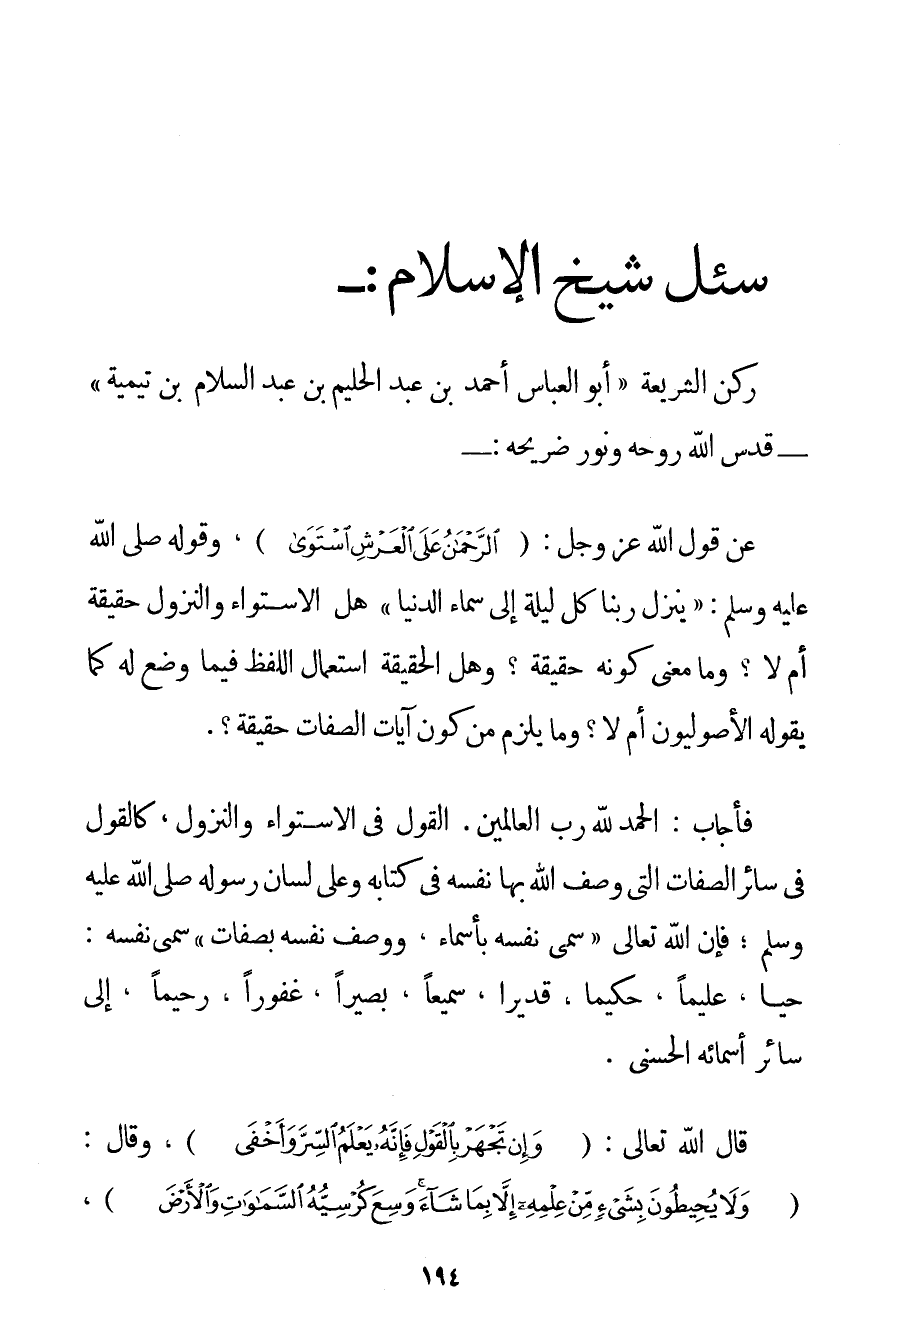 سئل شيخ الإسلام :ــ
ركن الشريعة « أبو العباس أحمد بن عبد الحليم بن عبد السلام بن تيمية »
ــ قدس الله روحه ونور ضريحه :ــ
عن قول الله عز وجل : ( ٱلرَّحْمَٰنُ عَلَى ٱلْعَرْشِ ٱسْتَوَىٰ ) ، وقوله صلى الله
عليه وسلم : « ينزل ربنا كل ليلة إلى سماء الدنيا » هل الاستواء والنزول حقيقة
أم لا ؟ وما معنى كونه حقيقة ؟ وهل الحقيقة استعمال اللفظ فيما وضع له كما
يقوله الأصوليون أم لا ؟ وما يلزم من كون آيات الصفات حقيقة ؟ .
فأجاب : الحمد لله رب العالمين . القول فى الاستواء والنزول ، كالقول
فى سائر الصفات التى وصف الله بها نفسه فى كتابه وعلى لسان رسوله صلى الله عليه
وسلم ؛ فإن الله تعالى « سمى نفسه بأسماء ، ووصف نفسه بصفات » سمى نفسه :
حيا ، عليماً ، حكيما ، قديرا ، سميعاً ، بصيراً ، غفوراً ، رحيماً ، إلى
سائر أسمائه الحسنى .
قال الله تعالى : ( وَإِن تَجْهَرْ بِٱلْقَوْلِ فَإِنَّهُۥ يَعْلَمُ ٱلسِّرَّ وَأَخْفَى ) ، وقال :
( وَلَا يُحِيطُونَ بِشَىْءٍ مِّنْ عِلْمِهِۦٓ إِلَّا بِمَا شَآءَ ۚ وَسِعَ كُرْسِيُّهُ ٱلسَّمَٰوَٰتِ وَٱلْأَرْضَ ) ،
١٩٤